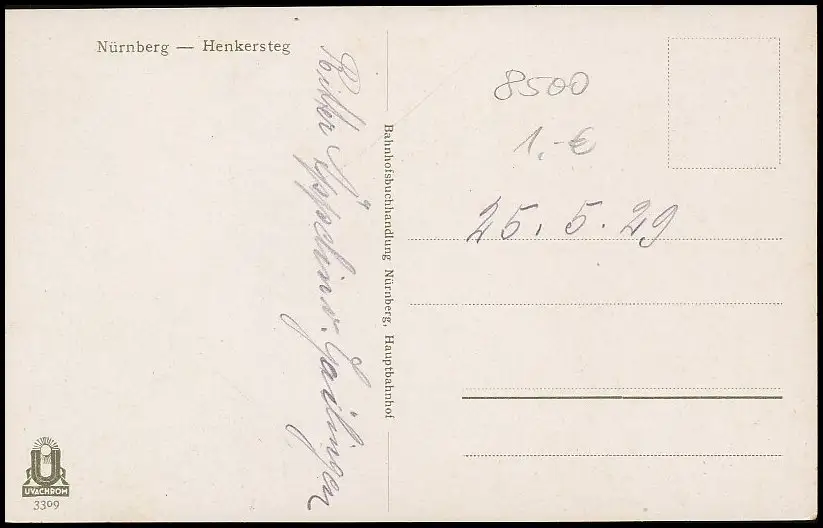 Nürnberg — Henkersteg
Ritter Äppelin v. Gailingen
Bahnhofsbuchhandlung Nürnberg, Hauptbahnhof
8500
1,-€
25. 5. 29
UVACHROM
3309